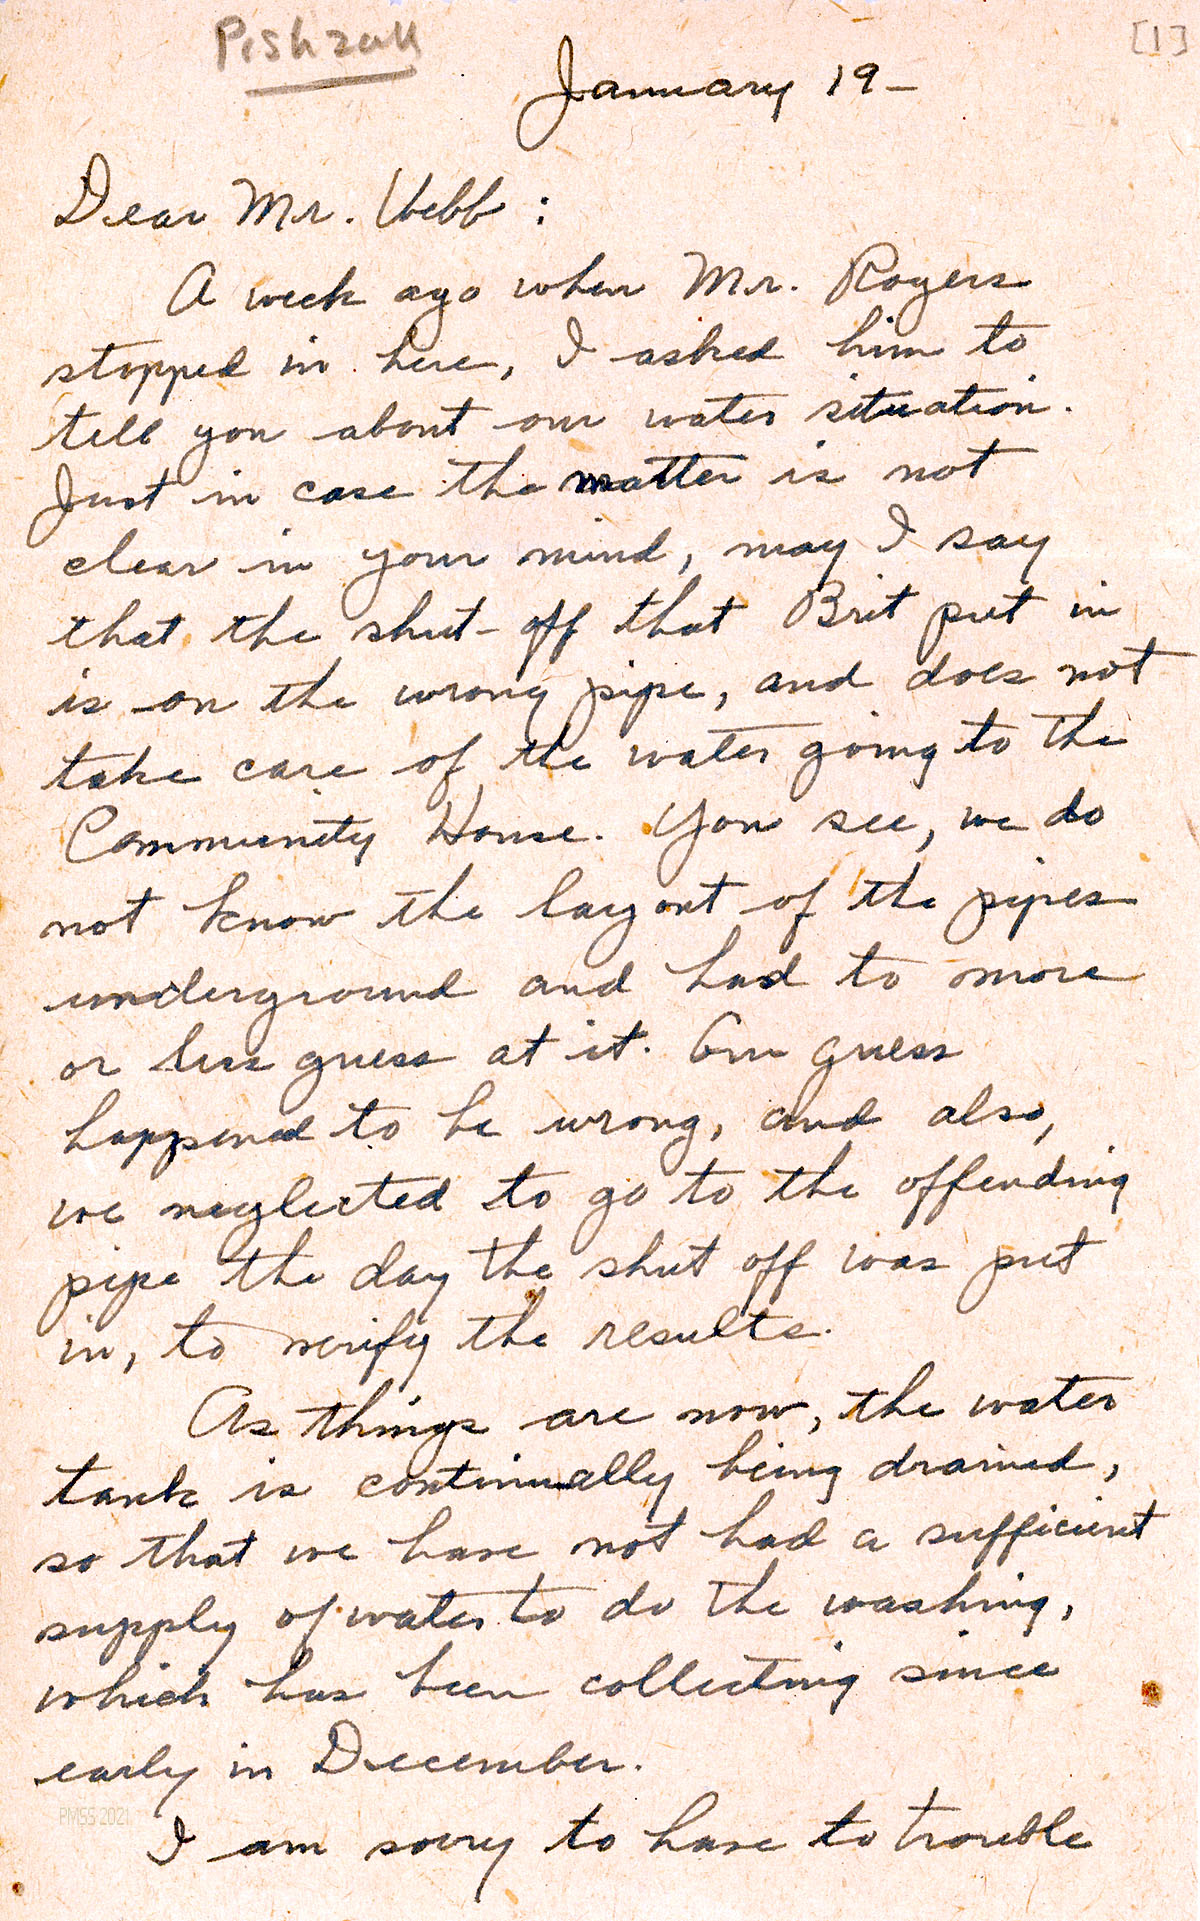 Pishzall
[1]
January 19-
Dear Mr. Webb:
A week ago when Mr. Rogers
stopped in here, I asked him to
tell you about our water situation.
Just in case the matter is not
clear in your mind, may I say
that the shut-off that Brit put in
is on the wrong pipe, and does not
take care of the water going to the
Community House. You see, we do
not know the layout of the pipes
underground and had to more
or less guess at it. Our guess
happened to be wrong, and also,
we neglected to go to the offending
pipe the day the shut off was put
in, to verify the results.
As things are now, the water
tank is continually being drained,
so that we have not had a sufficient
supply of water to do the washing,
which has been collecting since
early in December.
PMSS 2021
I am sorry to have to trouble